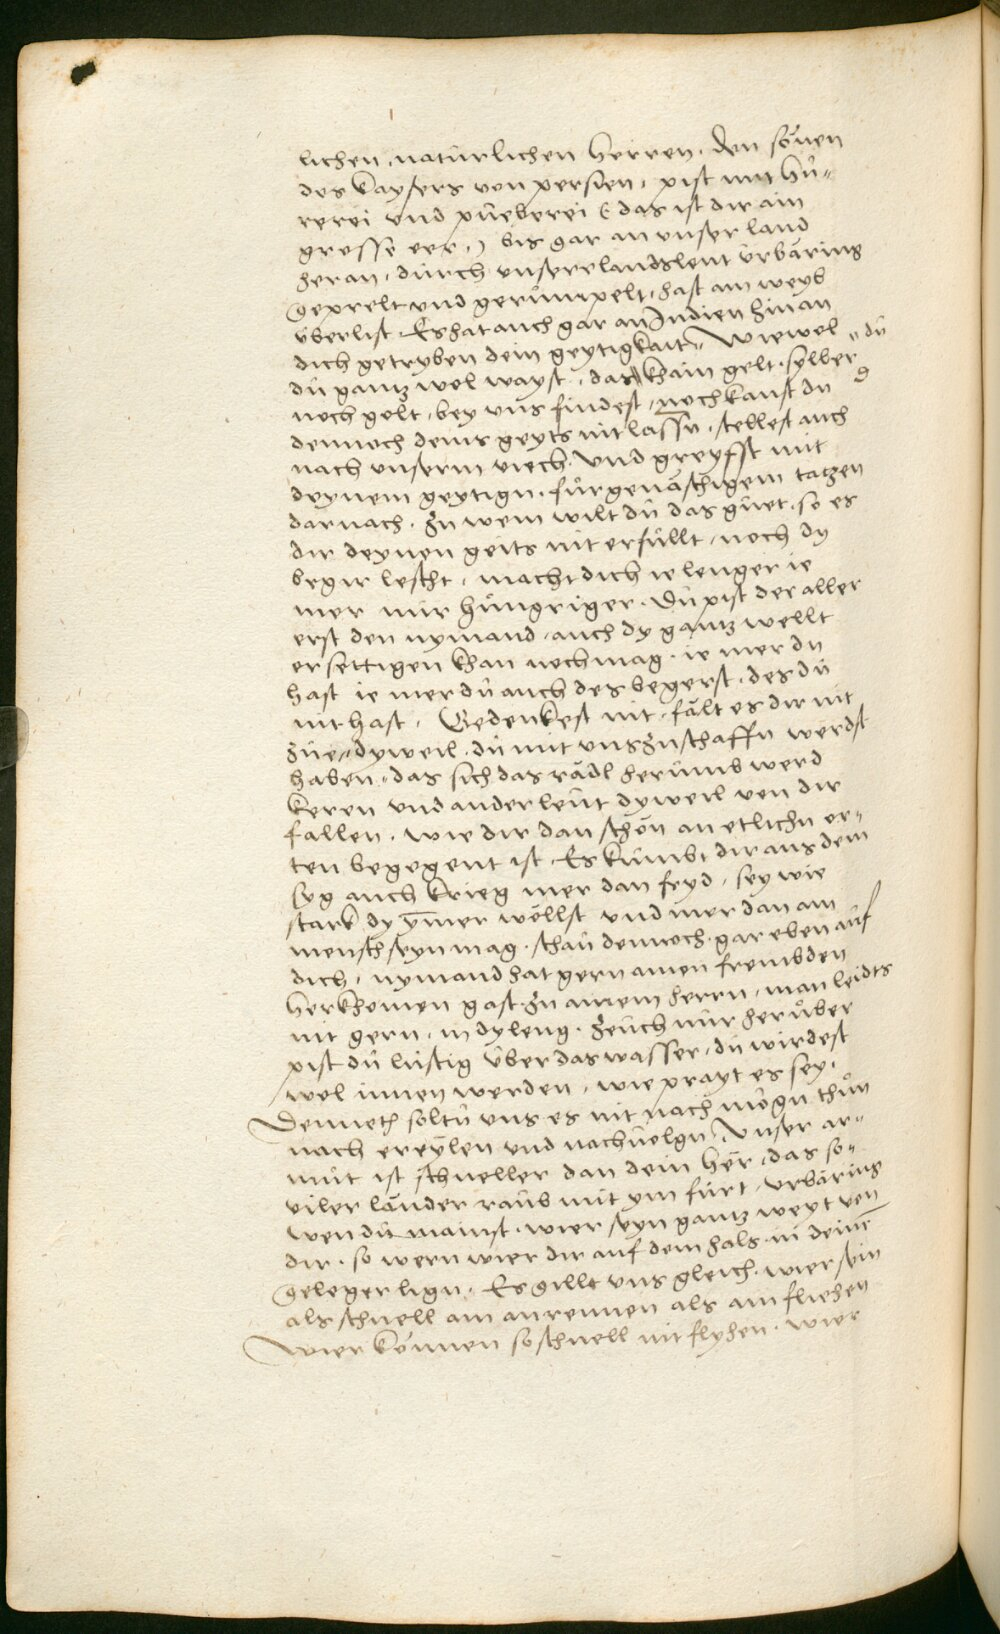 lichen, natürlichen herren, den sönen
des kaysers von persien, pist mit hü-
rerei und püeberei (das ist dir ain
grosse eer,) bis gar an unser land
heran, dürch unsere landsleut ürbäring
geprelt und gerümpelt, hast am weyb
überlist. Es hat auch gar an Indien hinan
dich getryben dein geytigkait. Wiewol
dü gantz wol wayst, das dü khain gelt, sylber
noch golt, bey uns findest, noch kanst du
dennoch deins geyts nit lassn, stellest auch
nach unserm viech. Und greyfst mit
deynem geytign, fürgenäschigem tatzen
darnach. Zu wem wilt dü das güet, so es
dir deynen geits nit erfüllt, noch dy
begir lescht, macht dich ie lenger ie
mer nür hüngriger. Dü pist der aller
erst den nymand, auch dy gantz wellt
ersettigen khan noch mag. ie mer du
hast ie mer dü auch des begerst, des dü
nit hast. Gedenkest nit, fält es dir nit
züe, dyweil dü mit uns zuschaffn werdst
haben, das sich das rädl herümb werd
keren und ander leut dyweil von dir
fallen. wie dir dan schon an etlichn or-
ten begegent ist. Es kümbt dir aus dem
syg auch krieg mer dan fryd, sey wie
stark dy ymer wöllst und mer dan am
mensch seyn mag. schau dennoch gar eben auf
dich, nymand hat gern ainen frembden
herkhomen gast zu ainem herrn, man leidts
nit gern, in dy leng. Zeuch nür herüber
pist dü lüstig über das wasser, dü wirdest
wol innen werden, wie prayt es sey,
Denneth soltü uns es nit nach mögn thün
nach ereylen und nachvolgn. Unser ar-
müt ist schneller dan dein hër, das so-
viler länder raub mit ym fürt, Urbäring
wen dü mainst, wier seyn gantz weyt von
dir. so wern wier dir auf dem hals in deinē
geleger lign. Es gillt uns gleich. wier sein
als schnell am anrennen als am fliehen
Wier können so schnell nit flyhen. wier